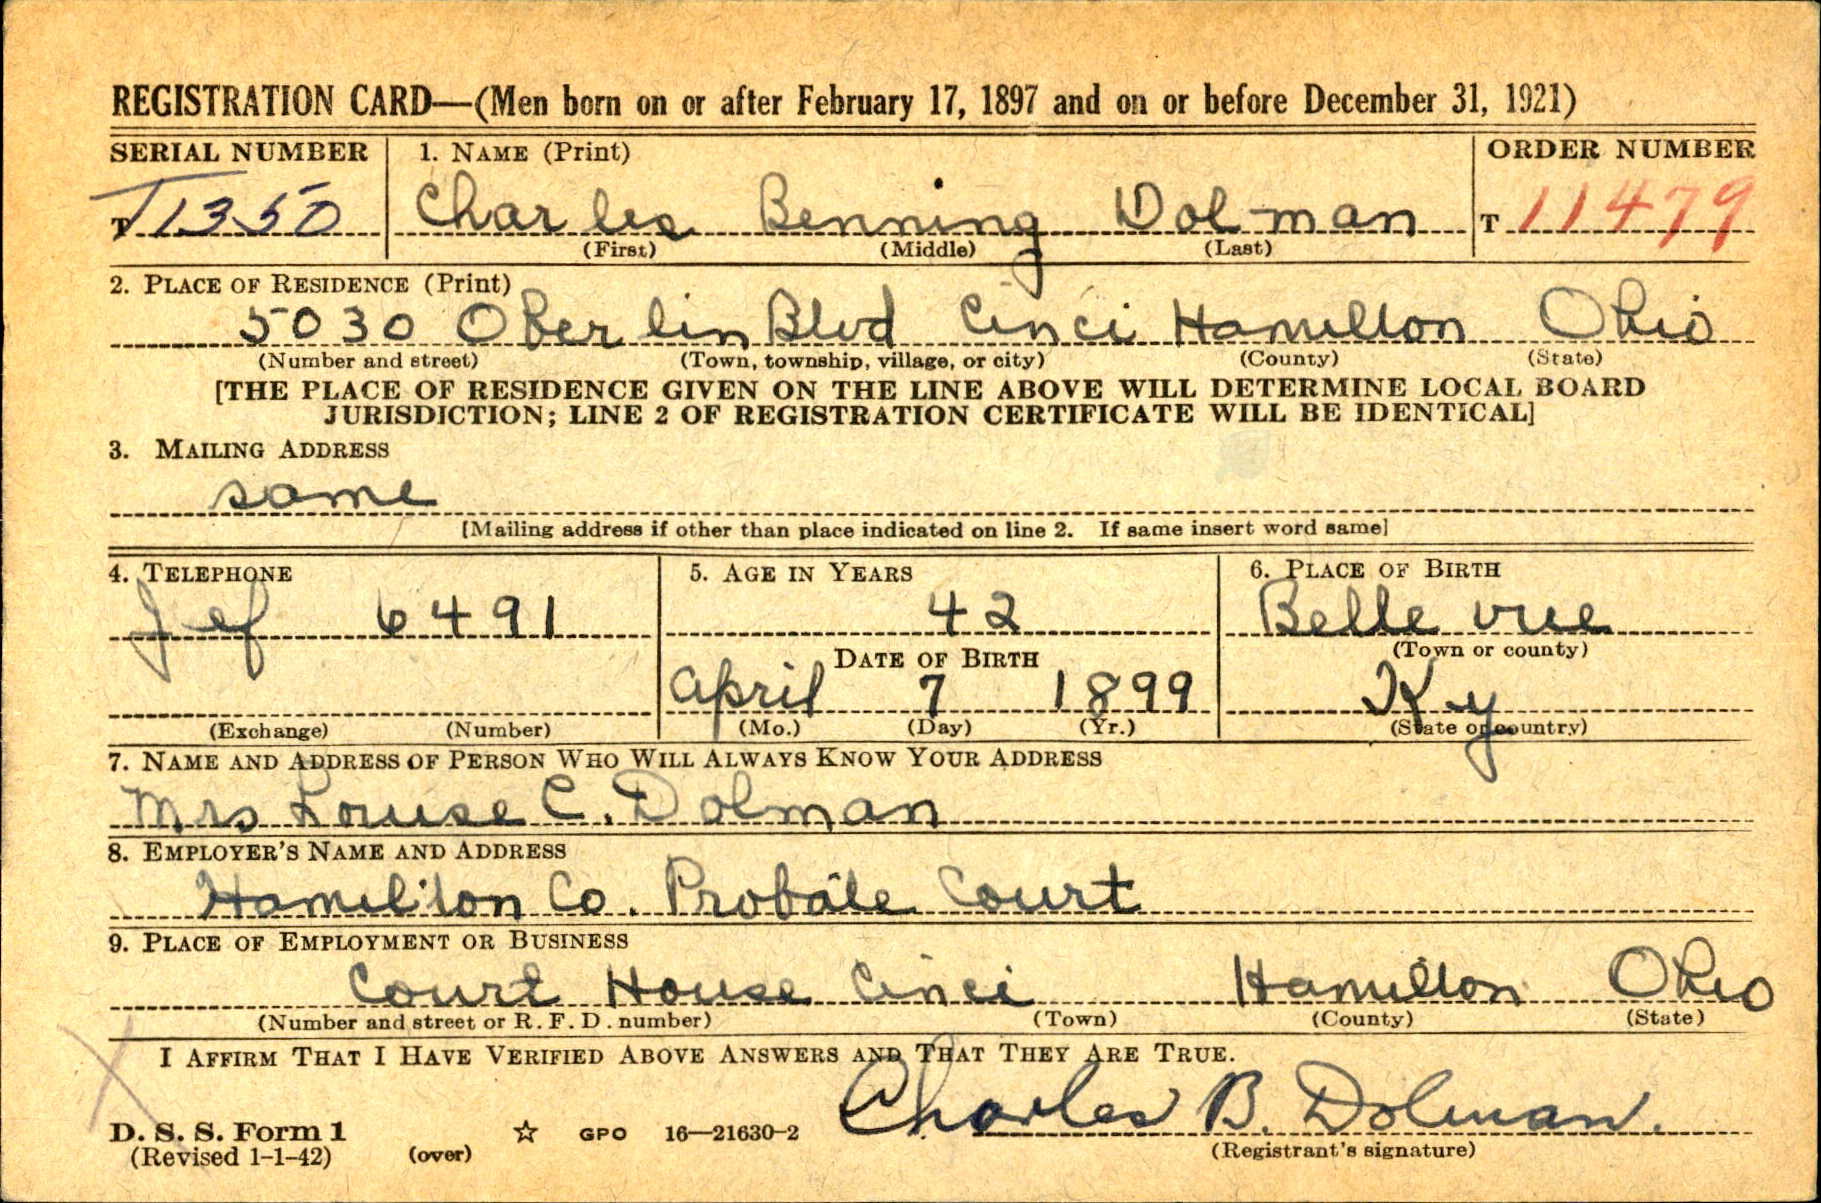 REGISTRATION CARD—(Men born on or after February 17, 1897 and on or before December 31, 1921)
SERIAL NUMBER 1. NAME (Print) ORDER NUMBER
T 1350 Charles Benning Dolman T 11479
(First) (Middle) (Last)
2. PLACE OF RESIDENCE (Print)
5030 Oberlin Blvd Cinci Hamilton Ohio
(Number and street) (Town, township, village, or city) (County) (State)
[THE PLACE OF RESIDENCE GIVEN ON THE LINE ABOVE WILL DETERMINE LOCAL BOARD
JURISDICTION; LINE 2 OF REGISTRATION CERTIFICATE WILL BE IDENTICAL]
3. MAILING ADDRESS
same
[Mailing address if other than place indicated on line 2. If same insert word same]
4. TELEPHONE 5. AGE IN YEARS 6. PLACE OF BIRTH
Jef 6491 42 Belle vue
DATE OF BIRTH (Town or county)
April 7 1899 Ky
(Exchange) (Number) (Mo.) (Day) (Yr.) (State or country)
7. NAME AND ADDRESS OF PERSON WHO WILL ALWAYS KNOW YOUR ADDRESS
Mrs Louise C. Dolman
8. EMPLOYER'S NAME AND ADDRESS
Hamilton Co. Probate Court
9. PLACE OF EMPLOYMENT OR BUSINESS
Court House Cinci Hamilton Ohio
(Number and street or R. F. D. number) (Town) (County) (State)
I AFFIRM THAT I HAVE VERIFIED ABOVE ANSWERS AND THAT THEY ARE TRUE.
Charles B. Dolman.
D. S. S. Form 1 ☆ GPO 16—21630-2
(Revised 1-1-42) (over) (Registrant's signature)